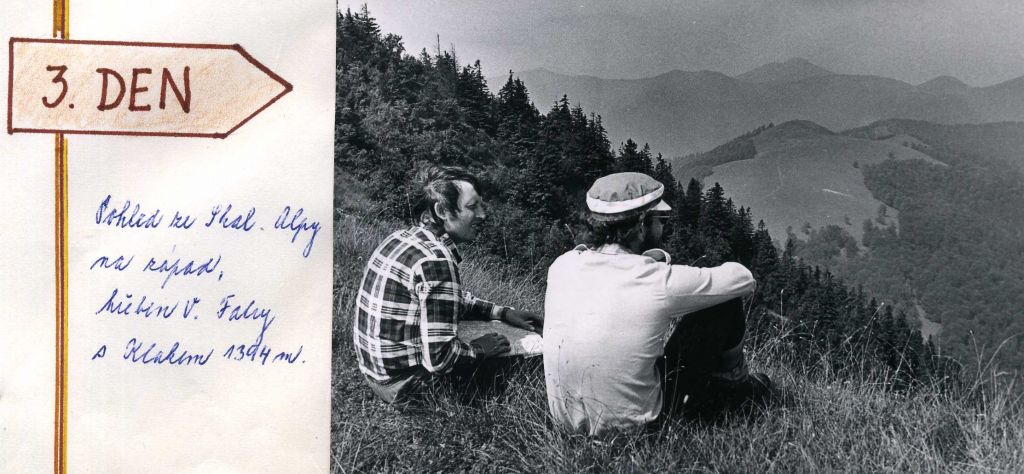 3. DEN
Pohled ze Skal. Alpy
na západ,
hřeben V. Fatry
s Klakem 1394 m.